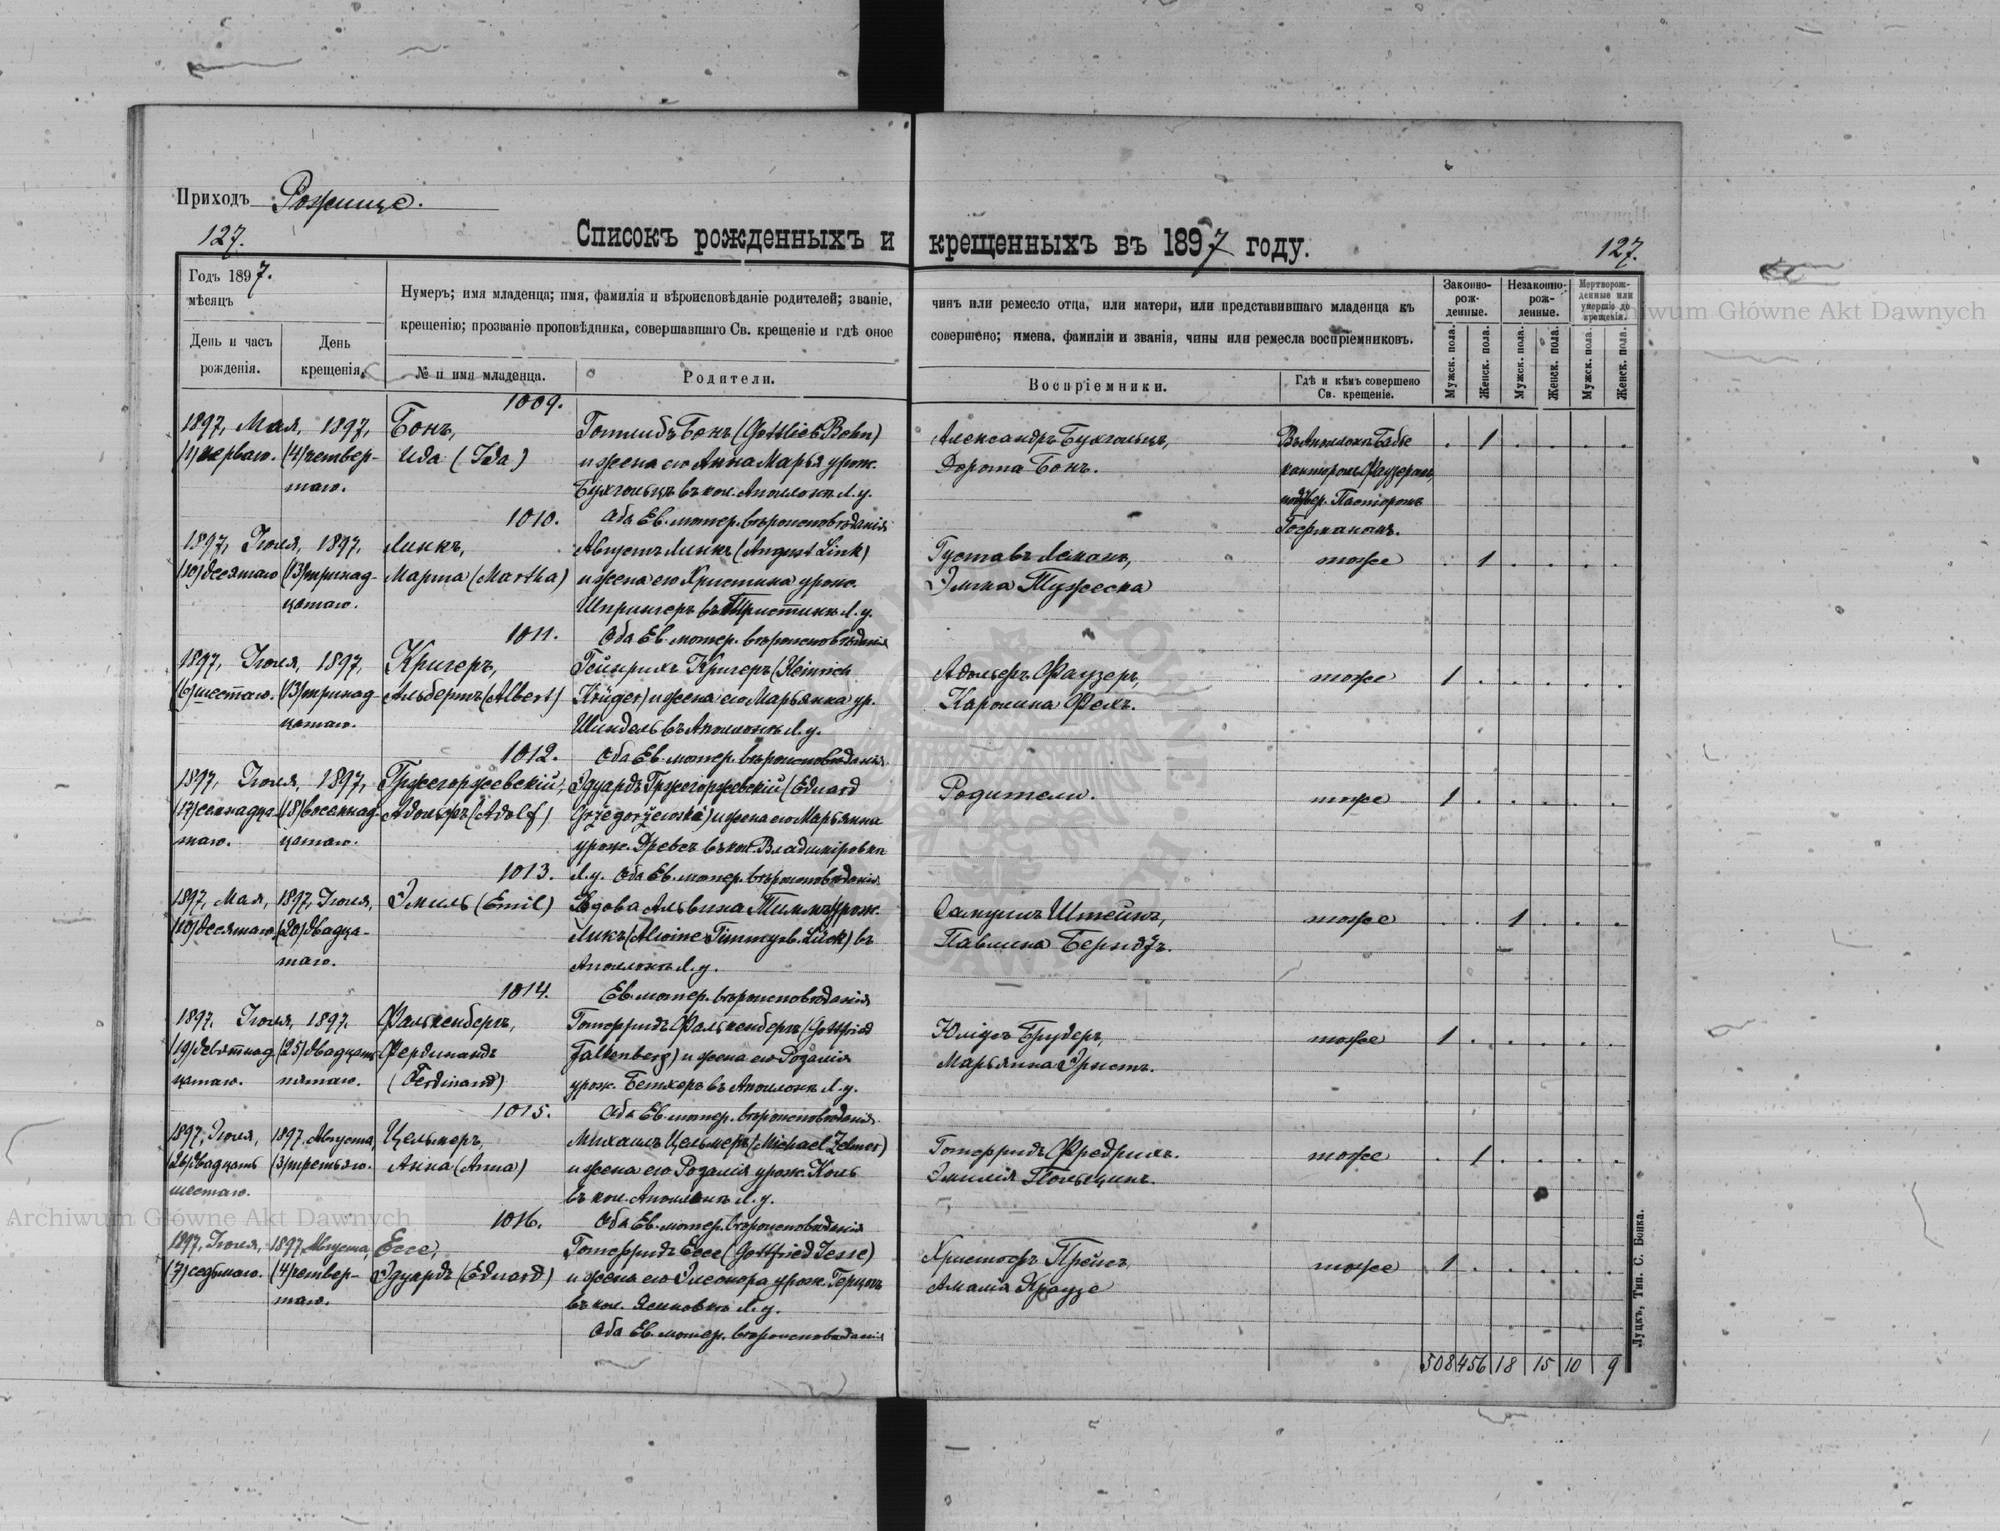 Приходъ Рожище.
127.
Списокъ рожденныхъ и крещенныхъ въ 1897 году.
127.
Годъ 1897.
мѣсяцъ
День и часъ рожденія.
День крещенія.
Нумеръ; имя младенца; имя, фамилія и вѣроисповѣданіе родителей; званіе,
чинъ или ремесло отца, или матери, или представившаго младенца къ
крещенію; прозваніе проповѣдника, совершавшаго Св. крещеніе и гдѣ оное
совершено; имена, фамиліи и званія, чины или ремесла воспріемниковъ.
№ и имя младенца.
Родители.
Воспріемники.
Гдѣ и кѣмъ совершено Св. крещеніе.
Законно-рожденные.
Незаконно-рожденные.
Мертворожденные или умершіе до крещенія.
Мужск. пола.
Женск. пола.
Мужск. пола.
Женск. пола.
Мужск. пола.
Женск. пола.
1009.
1897, Мая, 1897, Бонъ, Готлибъ Бонъ (Gottlieb Bohn) Александръ Бухгольцъ,
(1) перваго. (4) четвер- Ида (Ida) и жена его Анна Марья урож. Дорота Бонъ. 1
таго. Бухгольцъ въ кол. Аполлонк Л. у. подтвер. Пасторомъ
1010. Оба Ев. лютер. вѣроисповѣданія
1897, Іюля, 1897, Линкъ, Августъ Линкъ (August Link) Густавъ Леманъ, тоже 1
(10) десятаго (13) тринад- Марта (Martha) и жена его Христина урож.
цатаго. Шпрингеръ въ Л. у.
1011. Оба Ев. лютер. вѣроисповѣданія
1897, Іюля, 1897, Кригеръ, Гейнрихъ Кригеръ (Heinrich Адольфъ Фаузеръ, тоже 1
(6) шестаго. (13) тринад- Альбертъ (Albert) Krüger) и жена его Марьянна ур. Каролина
цатаго. Шиндель въ Аполлонк Л. у.
1012. Оба Ев. лютер. вѣроисповѣданія
1897, Іюля, 1897, Гржегоржевскій, Эдуардъ Гржегоржевскій (Eduard Родители. тоже 1
(17) семнадца- (18) восемнад- Адольфъ (Adolf) и жена его Марьянна
таго. цатаго. урож. въ кол. Владиміровка
1013. Л. у. Оба Ев. лютер. вѣроисповѣданія
1897, Мая, 1897, Іюля, Эмиль (Emil) Вдова Альвина Тиммъ урож. Самуилъ Штейнъ, тоже 1
(10) десятаго (20) двадца- Ликъ (Alwine Timm geb. Lück) въ Павлина Берндтъ.
таго. Аполлонк Л. у.
1014. Ев. лютер. вѣроисповѣданія
1897, Іюля, 1897, Фалькенбергъ, Готфридъ Фалькенбергъ (Gottfried Юліусъ Брудеръ, тоже 1
(19) девятнад- (25) двадцать Фердинандъ Falkenberg) и жена его Розалія Марьянна Эрнстъ.
цатаго. пятаго. (Ferdinand) урож. Бетхеръ въ Аполлонк Л. у.
1015. Оба Ев. лютер. вѣроисповѣданія
1897, Іюля, 1897, Августа, Цельмеръ, Михаилъ Цельмеръ (Michael Zelmer) Готфридъ Фредрихъ. тоже 1
(26) двадцать (3) третьяго. Анна (Anna) и жена его Розалія урож. Коль Эмилія
шестаго. въ кол. Аполлонк Л. у.
1016. Оба Ев. лютер. вѣроисповѣданія
1897, Іюля, 1897, Августа, Ессе, Готфридъ Ессе (Gottfried Jesse) Христофъ Прейсъ, тоже 1
(7) седьмаго. (4) четвер- Эдуардъ (Eduard) и жена его Элеонора урож. Герцогъ Амалія Краузе
таго. въ кол. Л. у.
Оба Ев. лютер. вѣроисповѣданія
508 456 18 15 10 9
Луцкъ, Тип. С. Бонка.
Archiwum Główne Akt Dawnych
Archiwum Główne Akt Dawnych